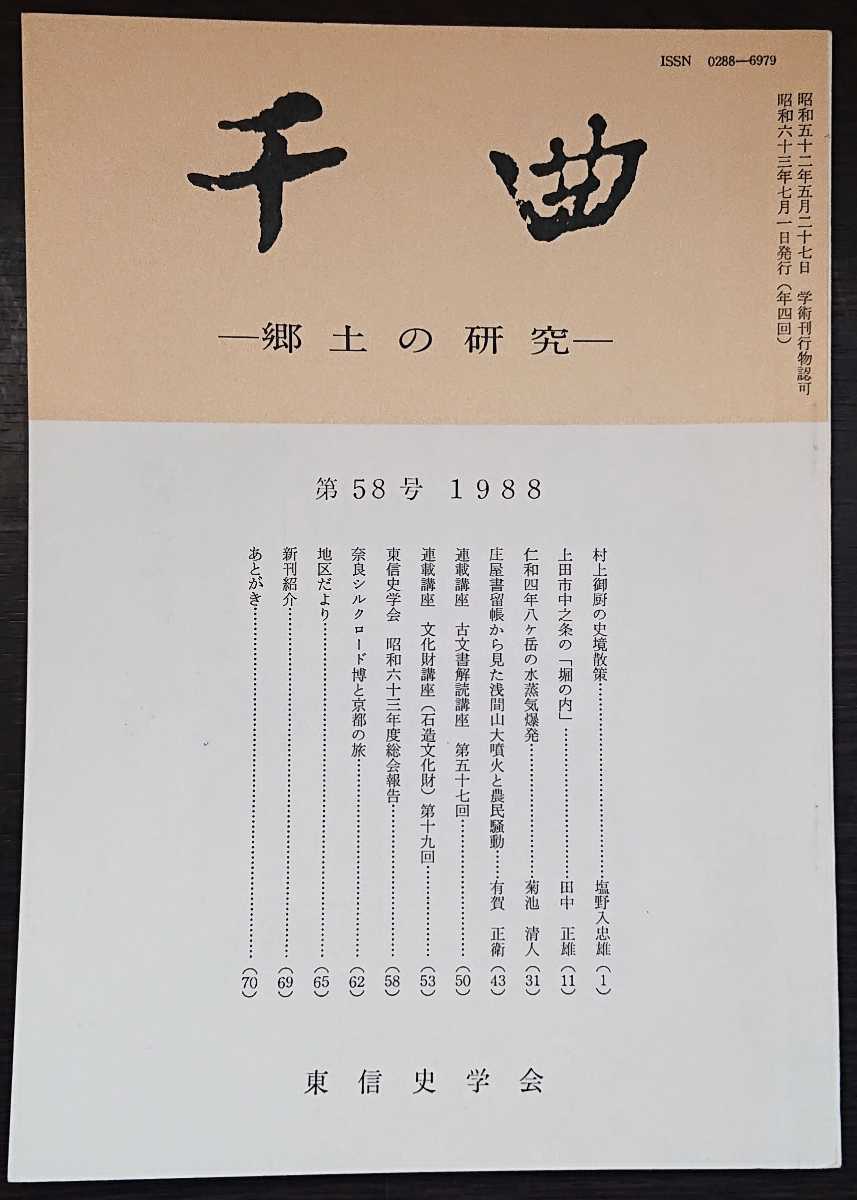 ISSN 0288—6979
昭和五十二年五月二十七日 学術刊行物認可
昭和六十三年七月一日発行（年四回）
千曲
—郷土の研究—
第58号 1988
村上御厨の史境散策…………塩野入忠雄（1）
上田市中之条の「堀の内」…………田中 正雄（11）
仁和四年八ヶ岳の水蒸気爆発…………菊池 清人（31）
庄屋書留帳から見た浅間山大噴火と農民騒動……有賀 正衛（43）
連載講座 古文書解読講座 第五十七回…………（50）
連載講座 文化財講座（石造文化財）第十九回…………（53）
東信史学会 昭和六十三年度総会報告…………（58）
奈良シルクロード博と京都の旅…………（62）
地区だより…………（65）
新刊紹介…………（69）
あとがき…………（70）
東信史学会